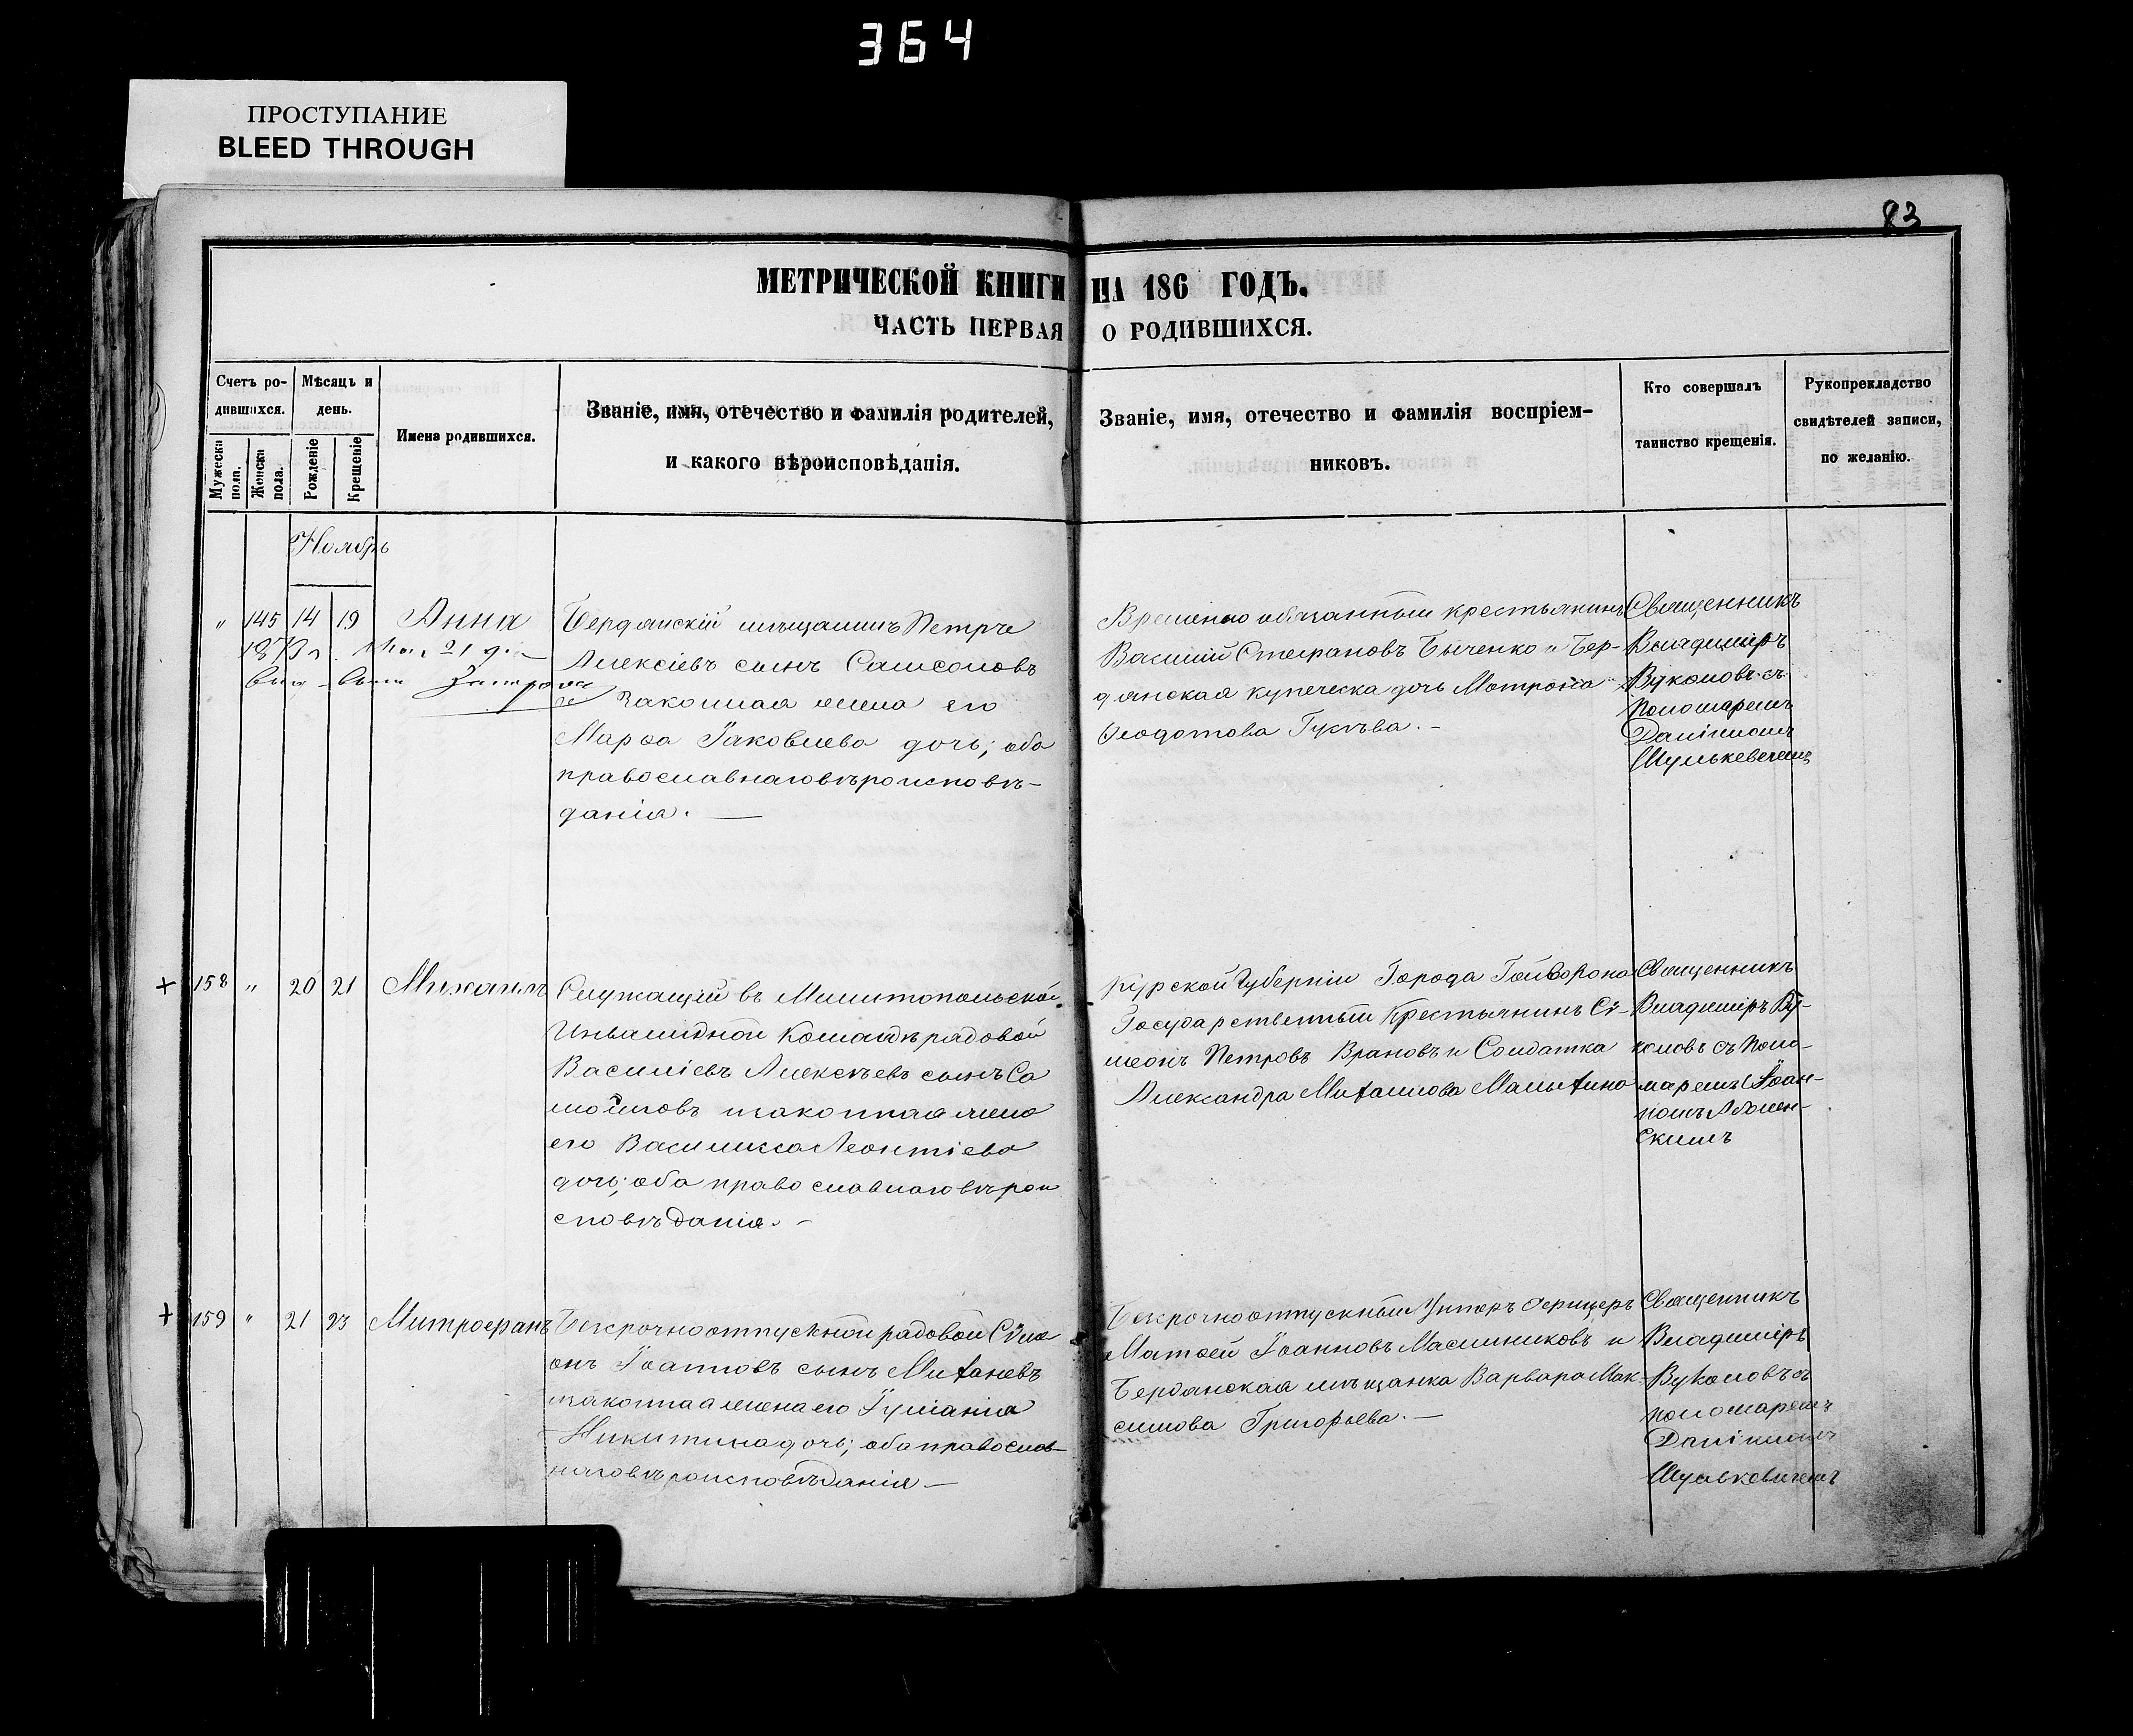 364
ПРОСТУПАНИЕ
BLEED THROUGH
83
МЕТРИЧЕСКОЙ КНИГИ НА 186 ГОДЪ.
ЧАСТЬ ПЕРВАЯ О РОДИВШИХСЯ.
Счетъ ро-
дившихся.
Мужеска пола.
Женска пола.
Мѣсяцъ и
день.
Рожденіе
Крещеніе
Имена родившихся.
Званіе, имя, отечество и фамилія родителей,
и какого вѣроисповѣданія.
Званіе, имя, отечество и фамилія воспріем-
никовъ.
Кто совершалъ
таинство крещенія.
Рукоприкладство
свидѣтелей записи,
по желанію.
Ноябрь
" 145 14 19 Анна
Бердянскій мѣщанинъ Петръ
Алексіевъ сынъ Самсоновъ
и законная жена его
Марѳа Іаковлева дочь; оба
православнаго вѣроисповѣ-
данія. —
Временно обязанный крестьянинъ
Василій Стефановъ Быченко и Бер-
дянская купеческа дочь Матрона
Ѳеодотова Гукѣва. —
Священникъ
Владиміръ
Вуколовъ съ
Пономаремъ
Даніиломъ
Шулькевичемъ
+ 158 " 20 21 Михаилъ
Служащій въ Мелитопольской
Инвалидной Командѣ рядовой
Василіевъ Алексѣевъ сынъ Са
мойловъ и законная жена
его Василисса Леонтіева
дочь; оба православнаго вѣрои
сповѣданія. —
Курской Губерніи Города Гайворона
Государственный Крестьянинъ Сѵ-
меонъ Петровъ Врановъ и Солдатка
Александра Михаилова Малыхина
Священникъ
Владиміръ Ву-
коловъ съ Поно-
маремъ Іоан-
номъ
скимъ
+ 159 " 21 23 Митрофанъ
Безсрочноотпускной рядовой Сѵме
онъ Іоанновъ сынъ Миханевъ
и законная жена его Іуліанія
Никитина дочь; оба православ-
наго вѣроисповѣданія —
Безсрочноотпускный Унтеръ Офицеръ
Матѳей Іоанновъ Масленниковъ и
Бердянская мѣщанка Варвара Мак-
симова Григорьева. —
Священникъ
Владиміръ
Вуколовъ съ
пономаремъ
Даніиломъ
Шулькевичемъ